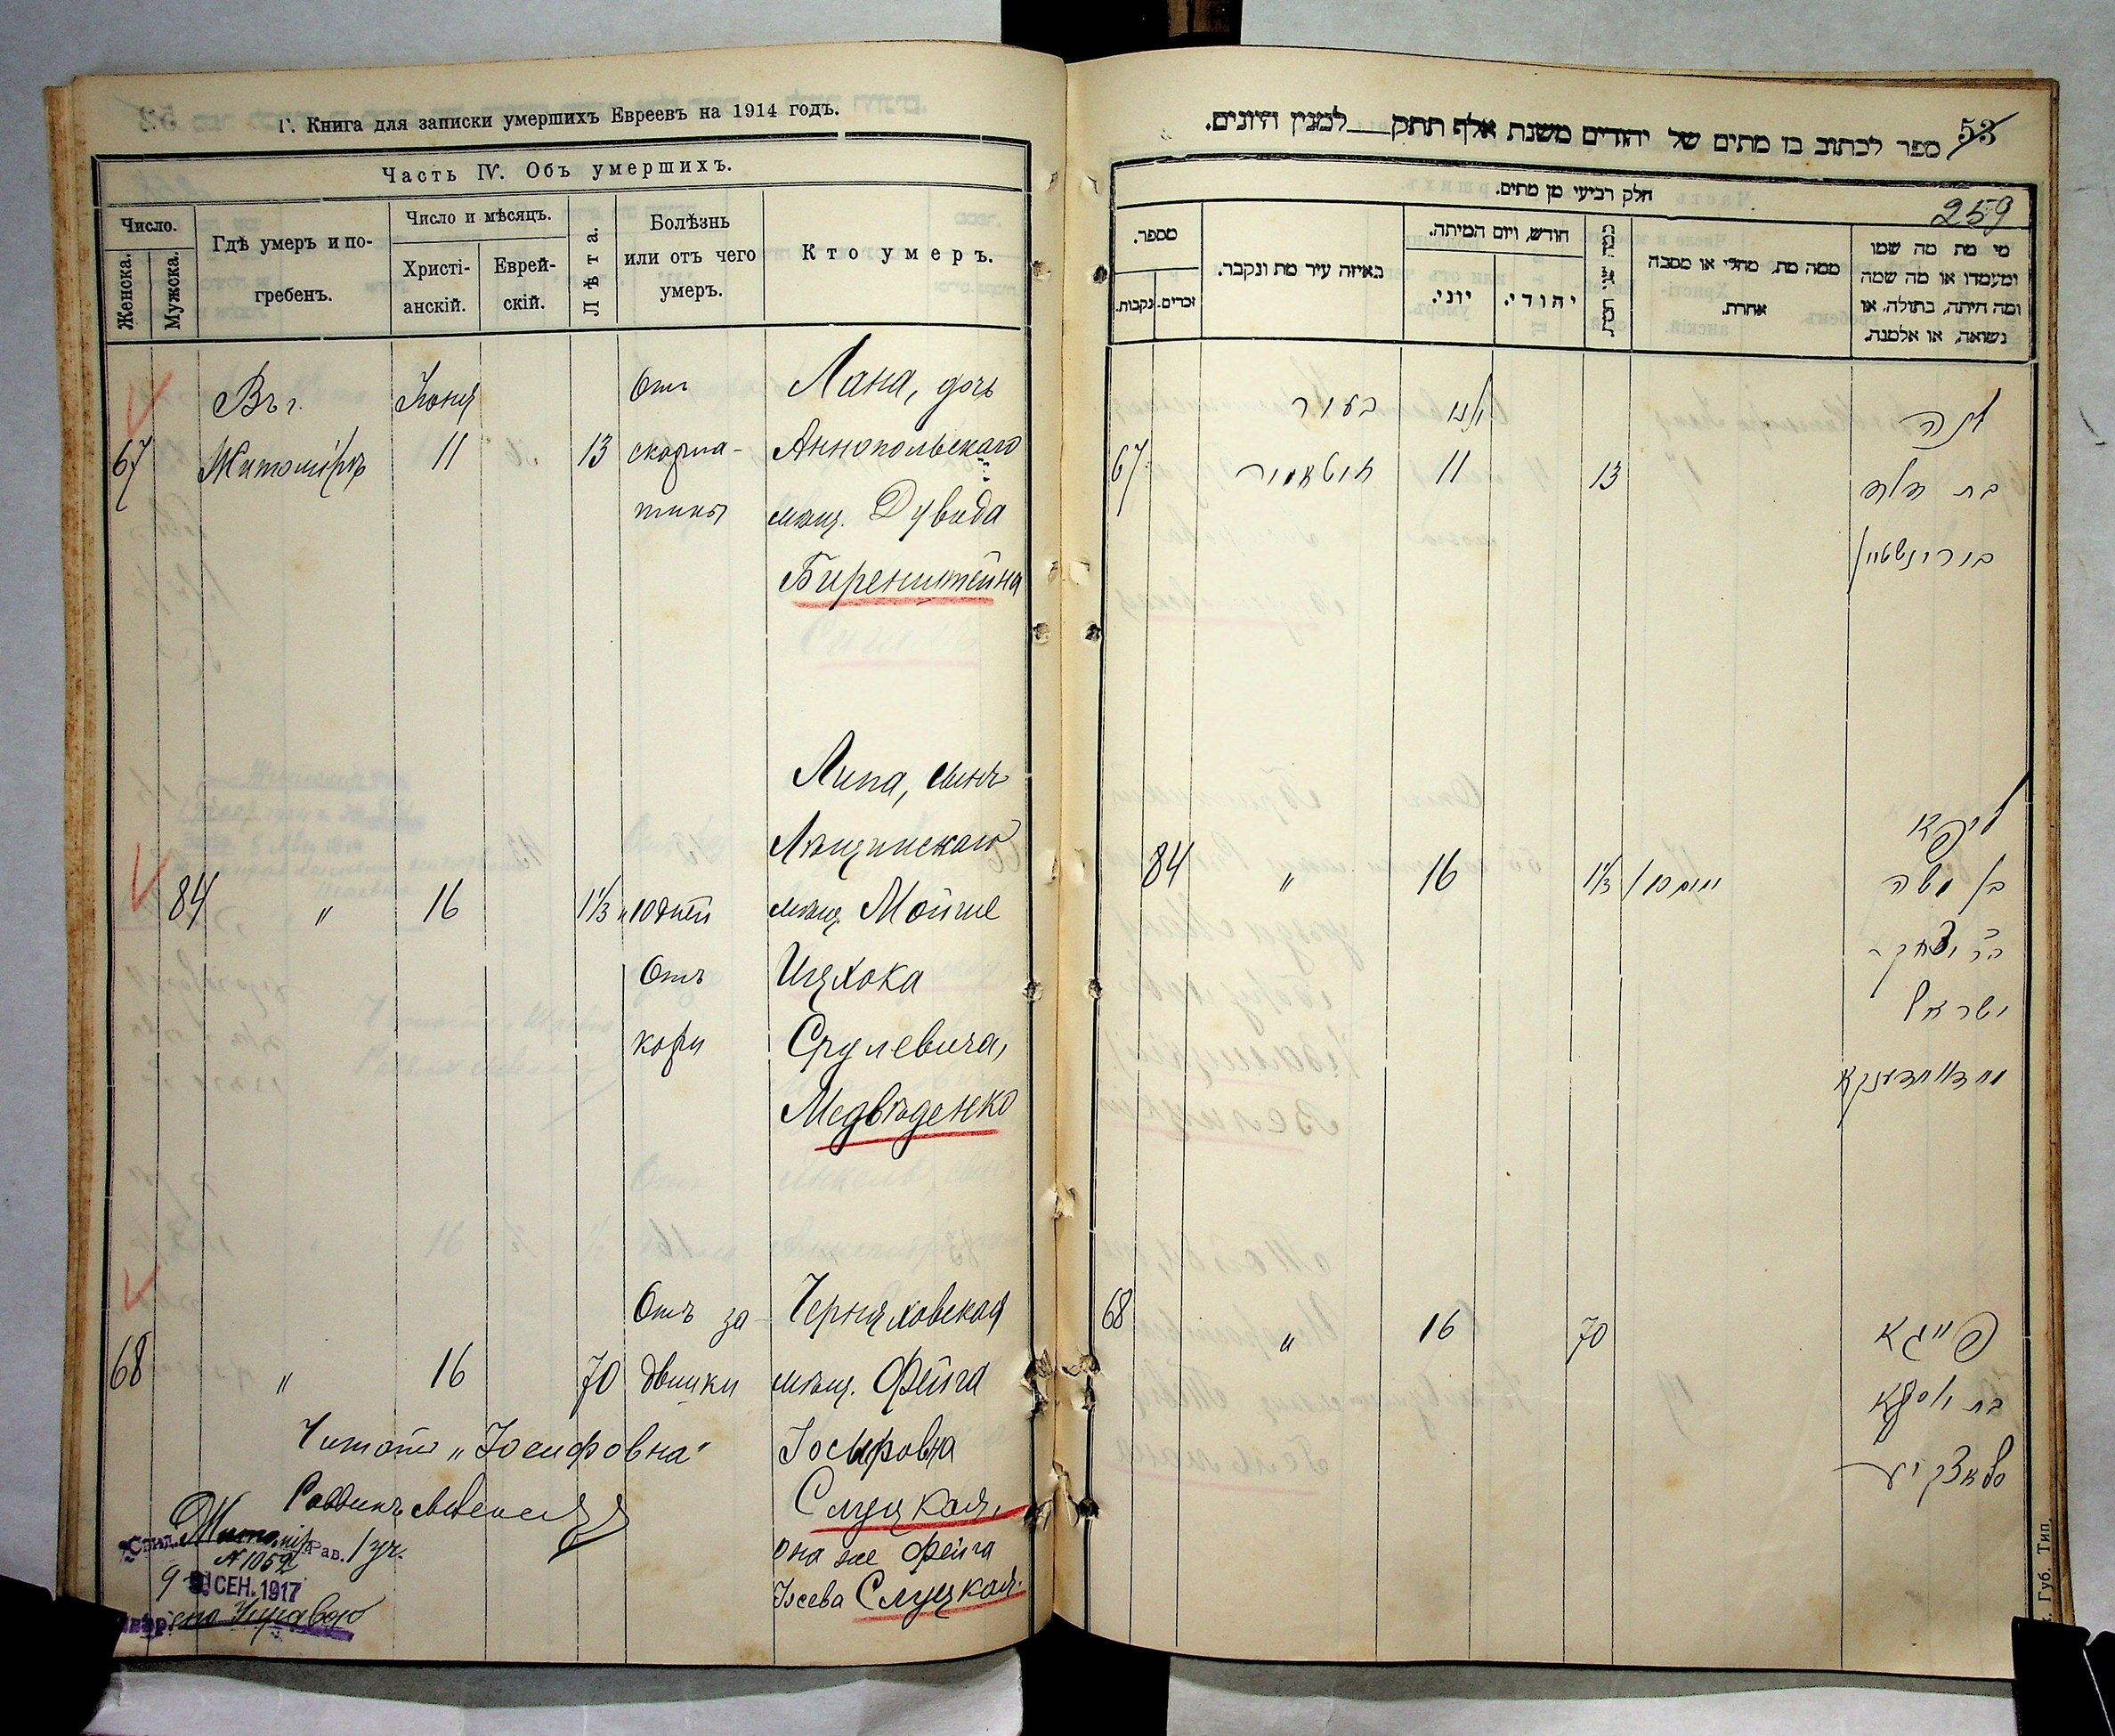 Г. Книга для записки умершихъ Евреевъ на 1914 годъ.
Часть IV. Объ умершихъ.
Число.
Женска.
Мужска.
Гдѣ умеръ и по-
гребенъ.
Число и мѣсяцъ.
Христі-
анскій.
Еврей-
скій.
Лѣта.
Болѣзнь
или отъ чего
умеръ.
Кто умеръ.
67
Въ г.
Житомірѣ
Іюня
11
13
Отъ
скарла-
тины
Лана, дочь
Аннопольскаго
мѣщ. Дувида
Биренштейна
84
"
16
1 1/3 и 10 дней
Отъ
кори
Липа, сынъ
Лѣщинскаго
мѣщ. Мойше
Ицхока
Срулевича,
Медвѣденко
68
"
16
70
Отъ за-
Черняховская
мѣщ. Фейга
Іосифовна
Слуцкая,
она же Фейга
Слуцкая.
Читать „Іосифовна"
Раввинъ
1 уч.
№ 1052
9 СЕН. 1917
53
ספר לכתוב בו מתים של יהודים משנת אלף תתק למנין היונים.
259
חלק רביעי מן מתים.
מספר.
נקבות.
זכרים.
באיזה עיר מת ונקבר.
חודש, ויום המיתה.
יוני.
יהודי.
ממה מת, מחלי או מסבה
אחרת.
מי מת מה שמו
ומעמדו או מה שמה
ומה היתה, בתולה, או
נשואה, או אלמנה.
67
בעיר
זיטאמיר
יוני
11
13
לנה
בת דוד
בירינשטיין
84
"
16
1 1/3
ו 10 ימים
ליפא
בן משה
יצחק
ישראל
מעדוועדענקא
68
"
16
70
פייגא
בת יוסף
סלאצקיע
Губ. Тип.